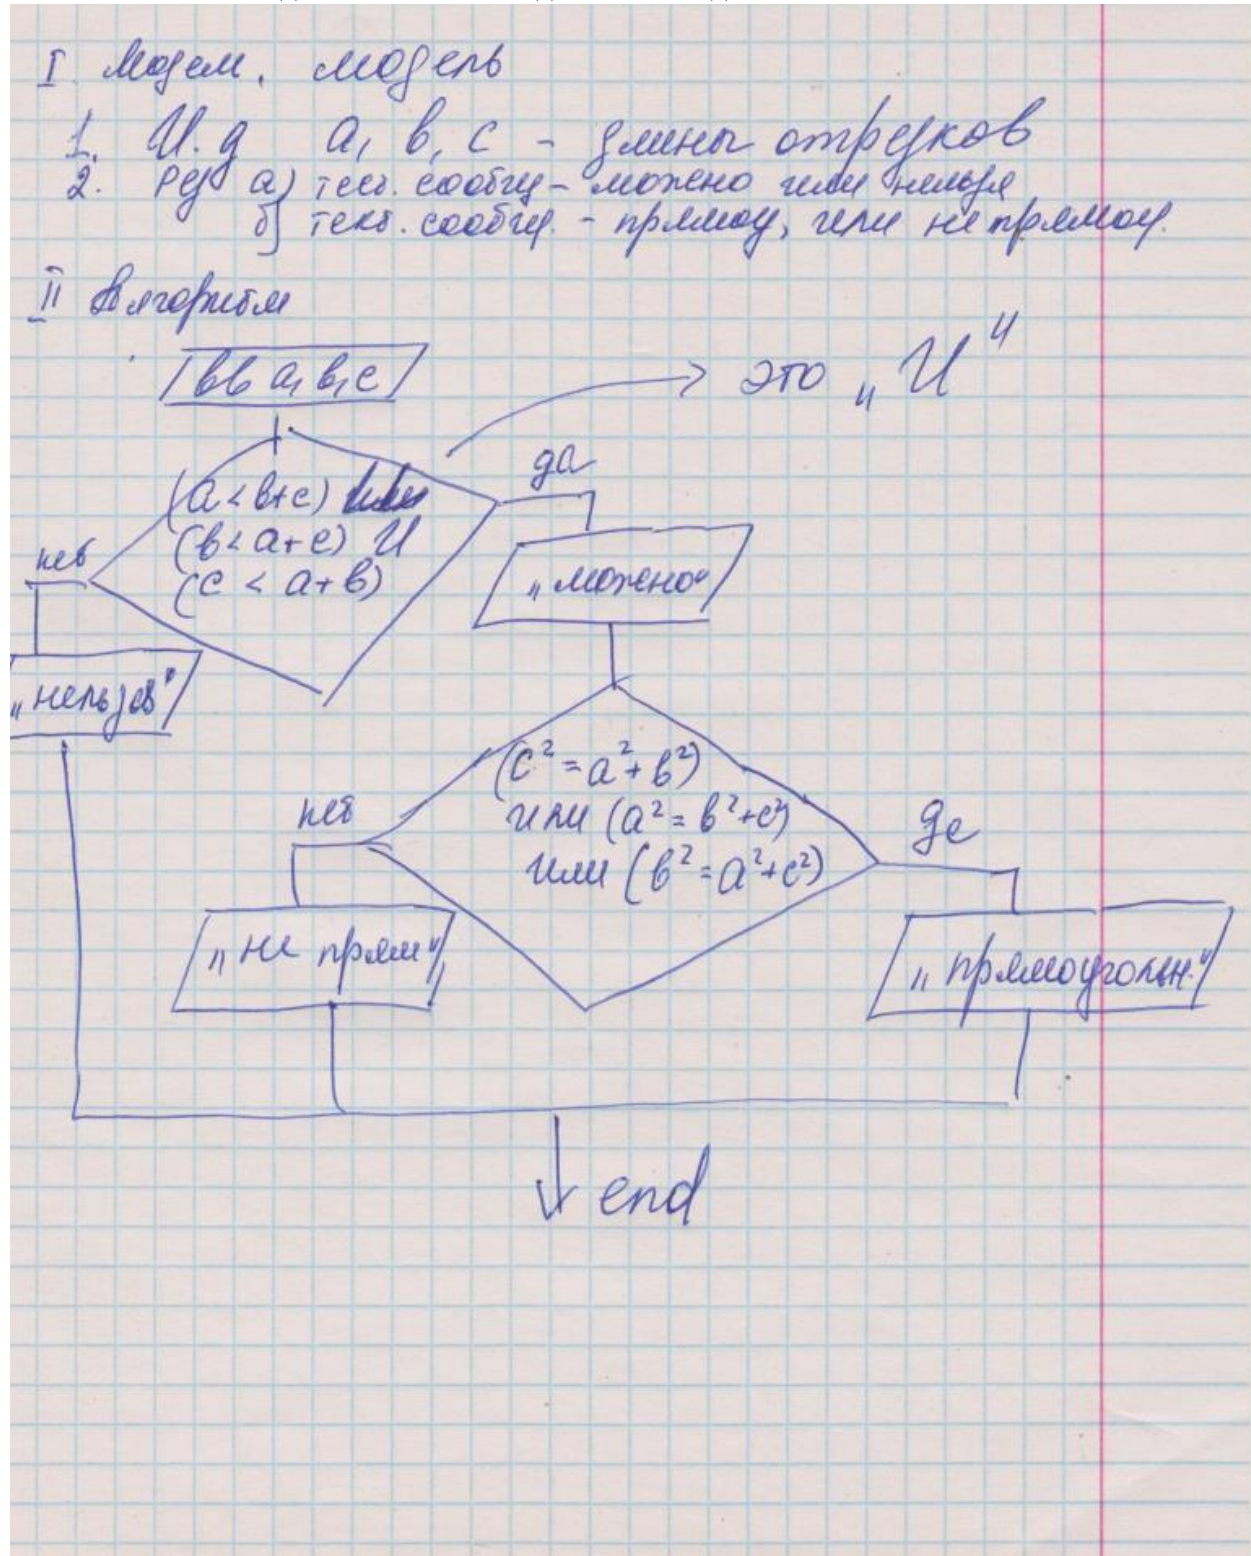 I Матем. модель
1. И.д a, b, c - длины отрезков
2. Рез а) текст. сообщ - можно или нельзя
б) текст. сообщ. - прямоу, или не прямоу.
II Алгоритм
вв a, b, c
это „И"
да
(a < b+c)
(b < a+c) И
(c < a+b)
нет
„можно"
„нельзя"
(c² = a² + b²)
или (a² = b² + c²)
или (b² = a² + c²)
нет
да
„не прям"
„прямоугольн."
end